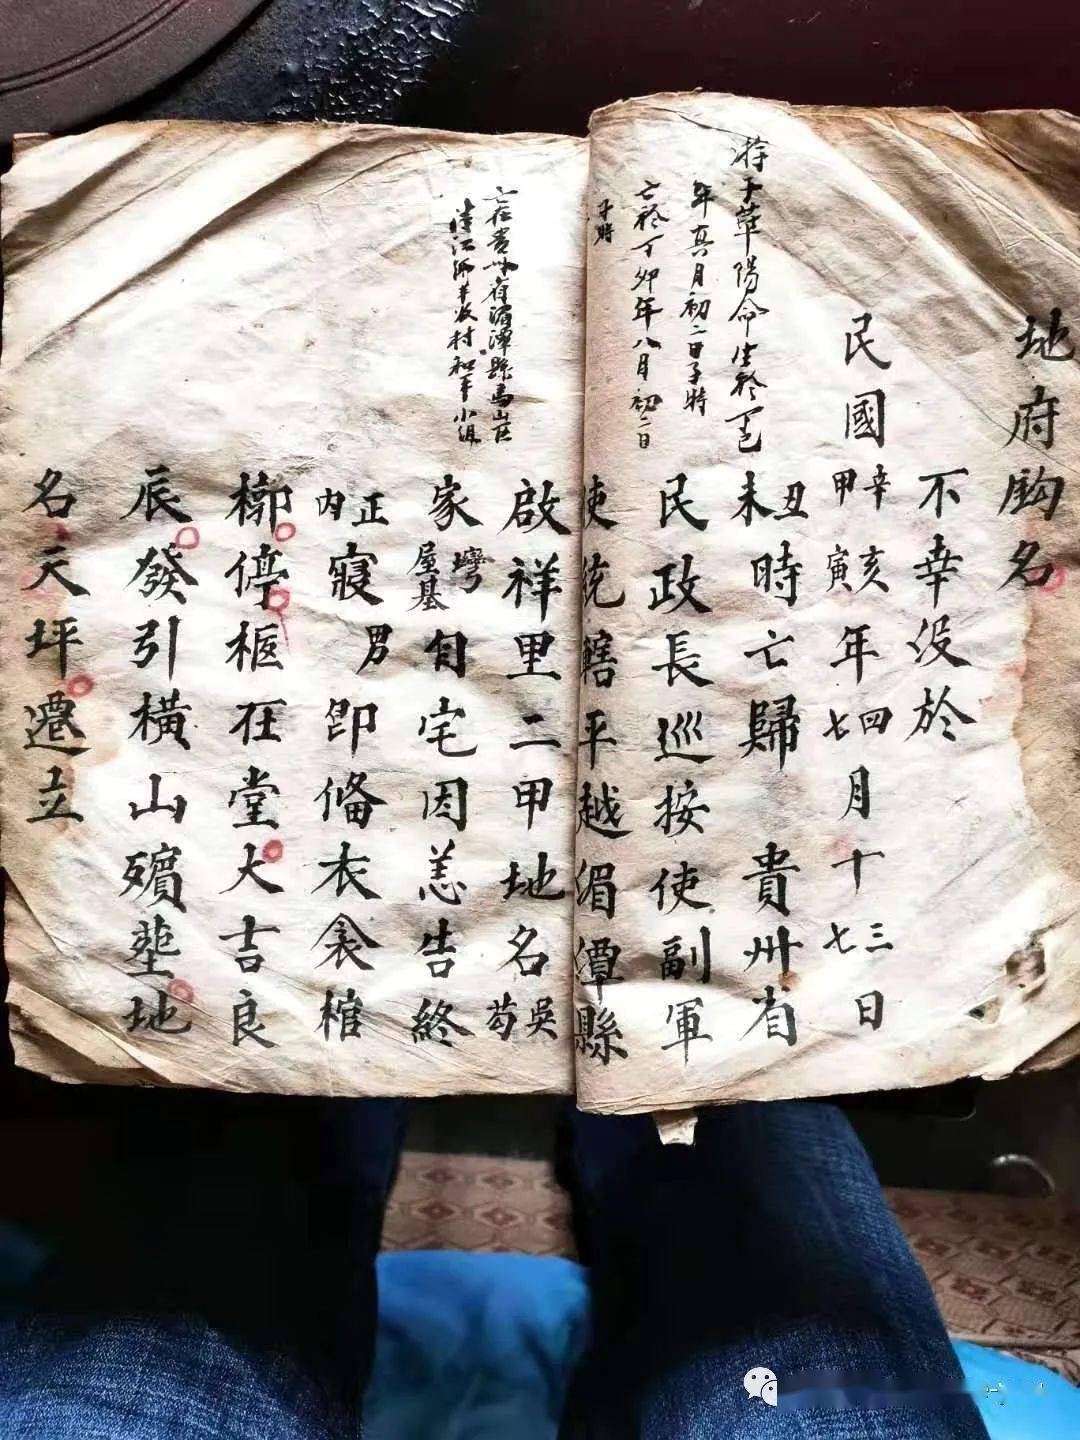 地府鈎名
不幸没於
民國辛亥甲寅年四七月十三七日
丑未時亡歸 貴州省
民政長巡按使副軍
使統轄平越湄潭縣
啟祥里二甲地名吳芶
家灣屋基自宅因恙告終
正內寢男即俻衣衾棺
槨停柩在堂大吉良
辰發引橫山殯塟地
名天坪遷立
陽命生於
年 月初二日子時
亡於丁卯年八月初二日
子時
亡在貴州省湄潭縣馬山區
村和平小組